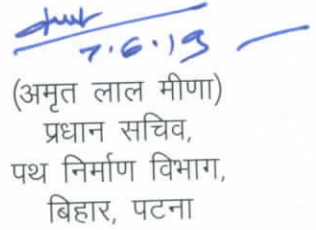 7.6.19
(अमृत लाल मीणा)
प्रधान सचिव,
पथ निर्माण विभाग,
बिहार, पटना